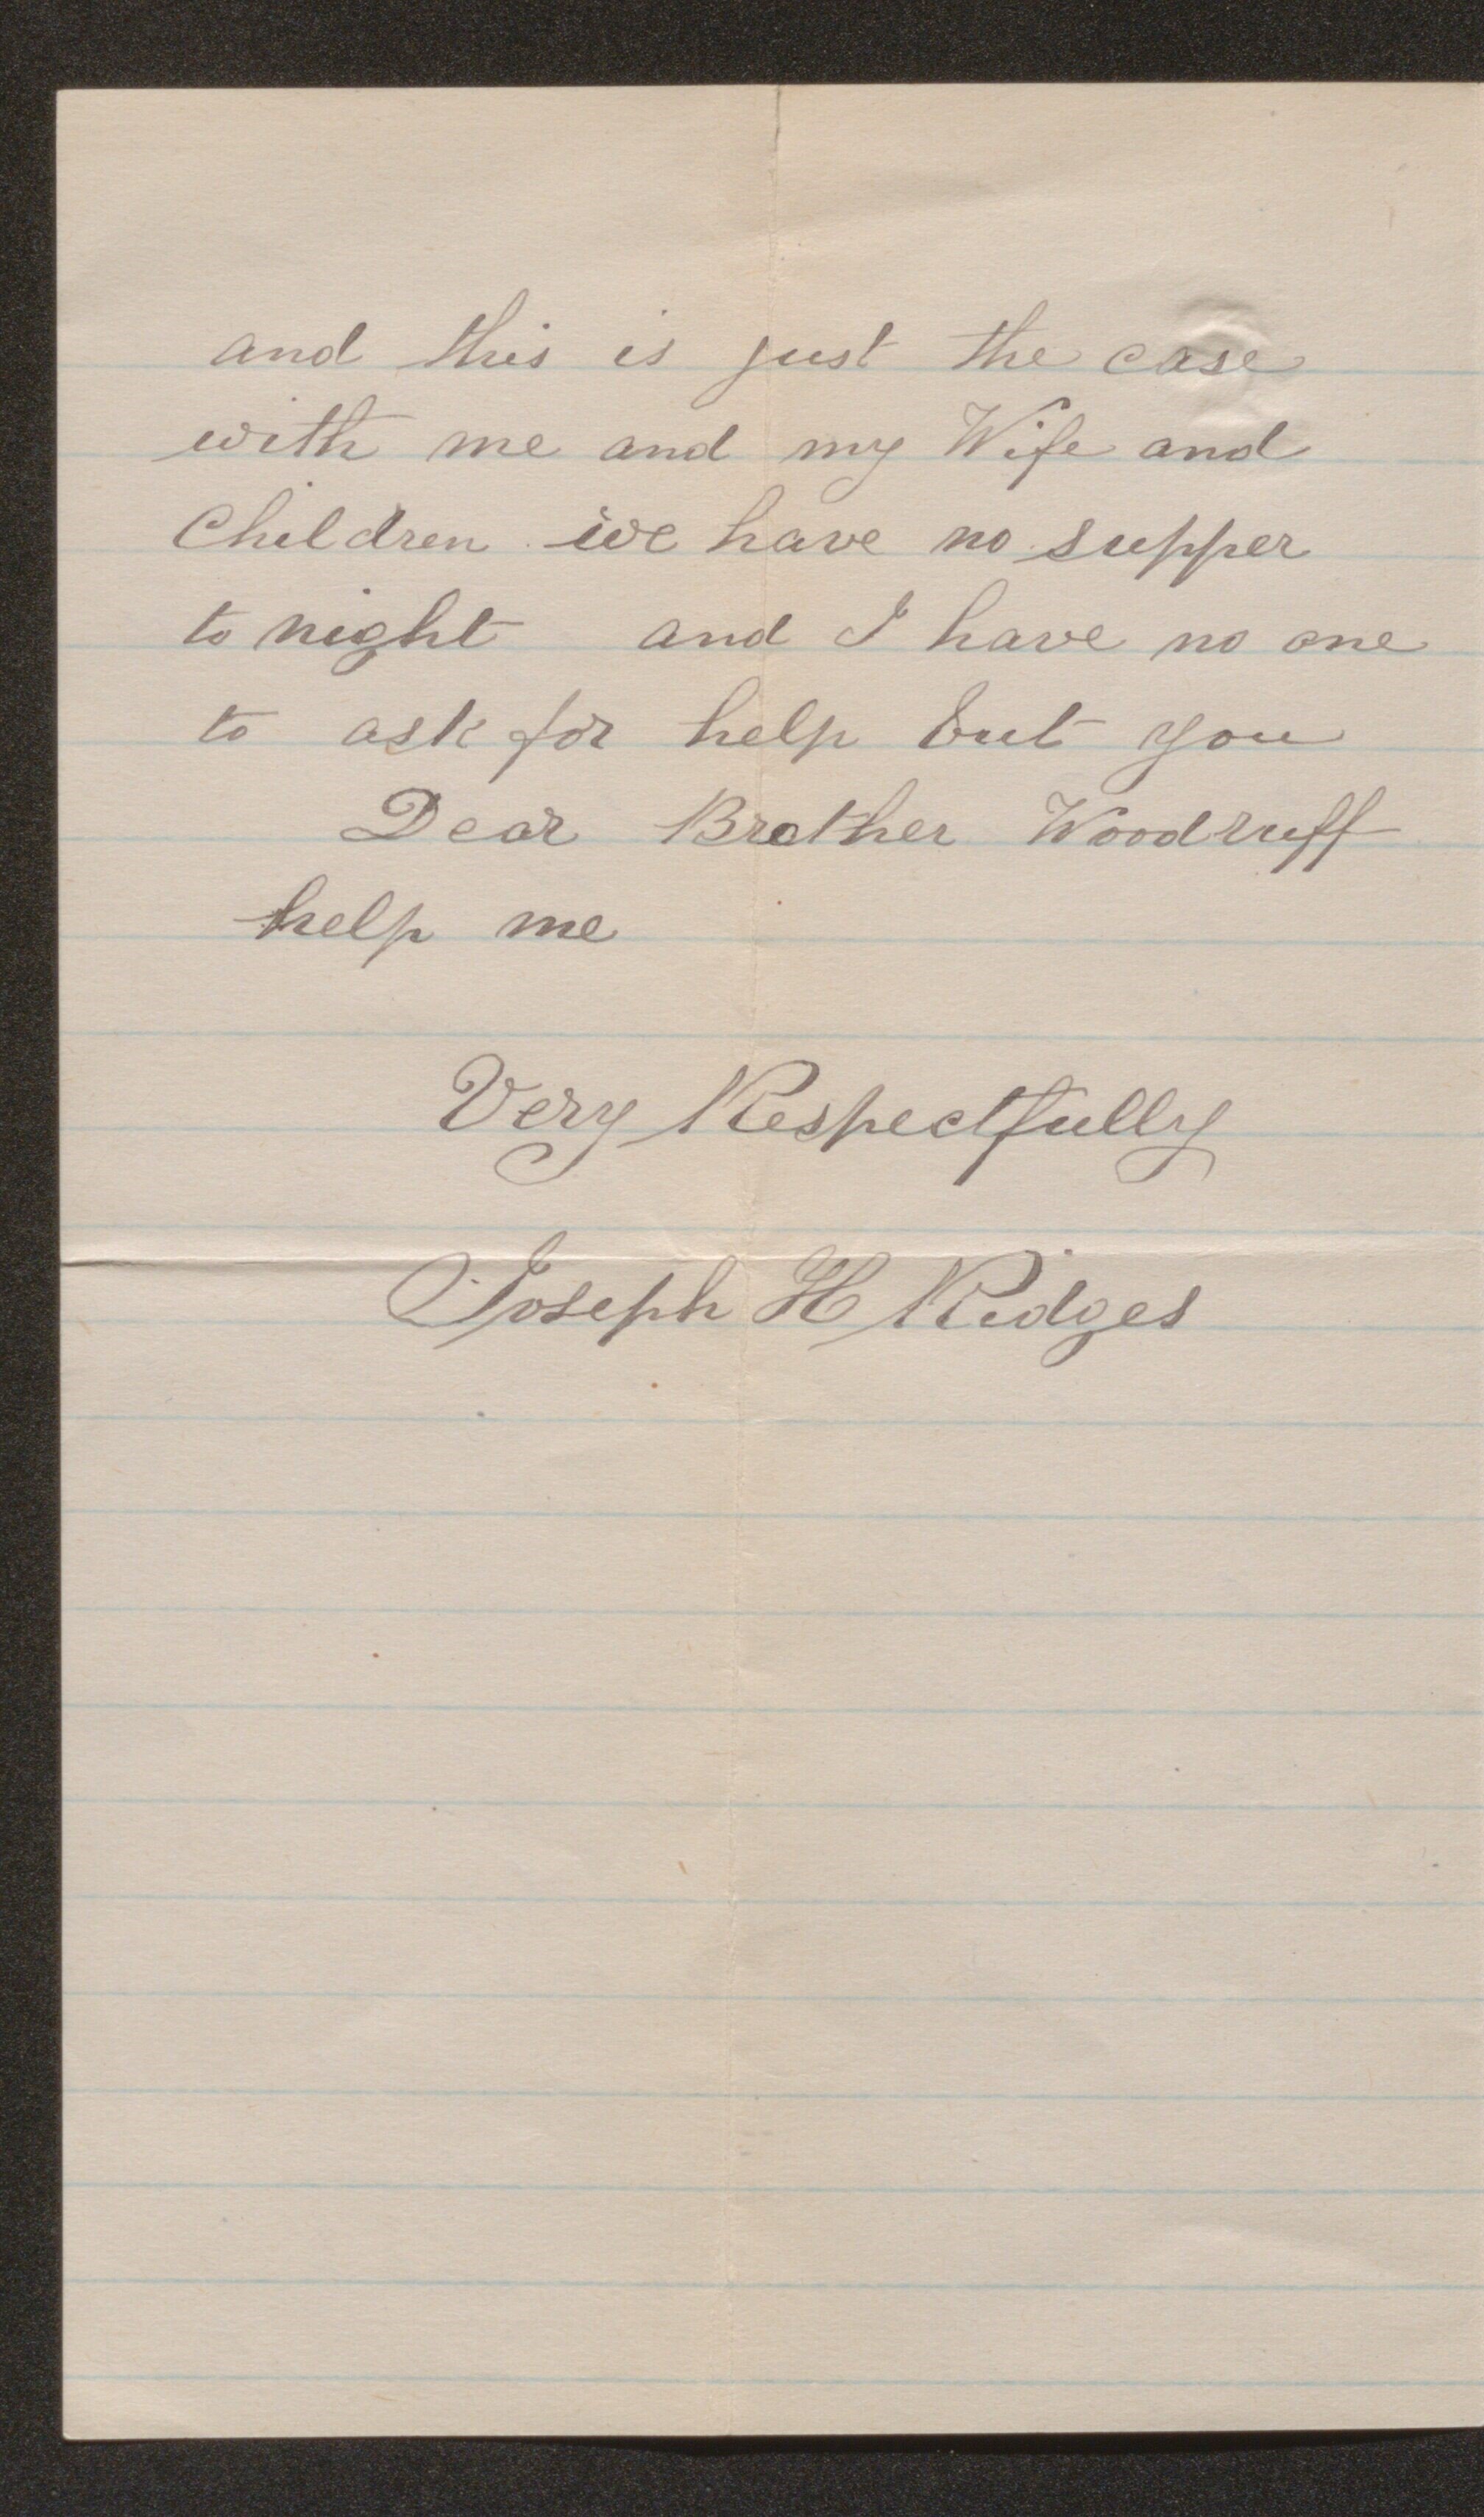 and this is just the case
with me and my Wife and
Children we have no supper
to night and I have no one
to ask for help but you
Dear Brother Woodruff
help me
Very Respectfully
Joseph H Ridges